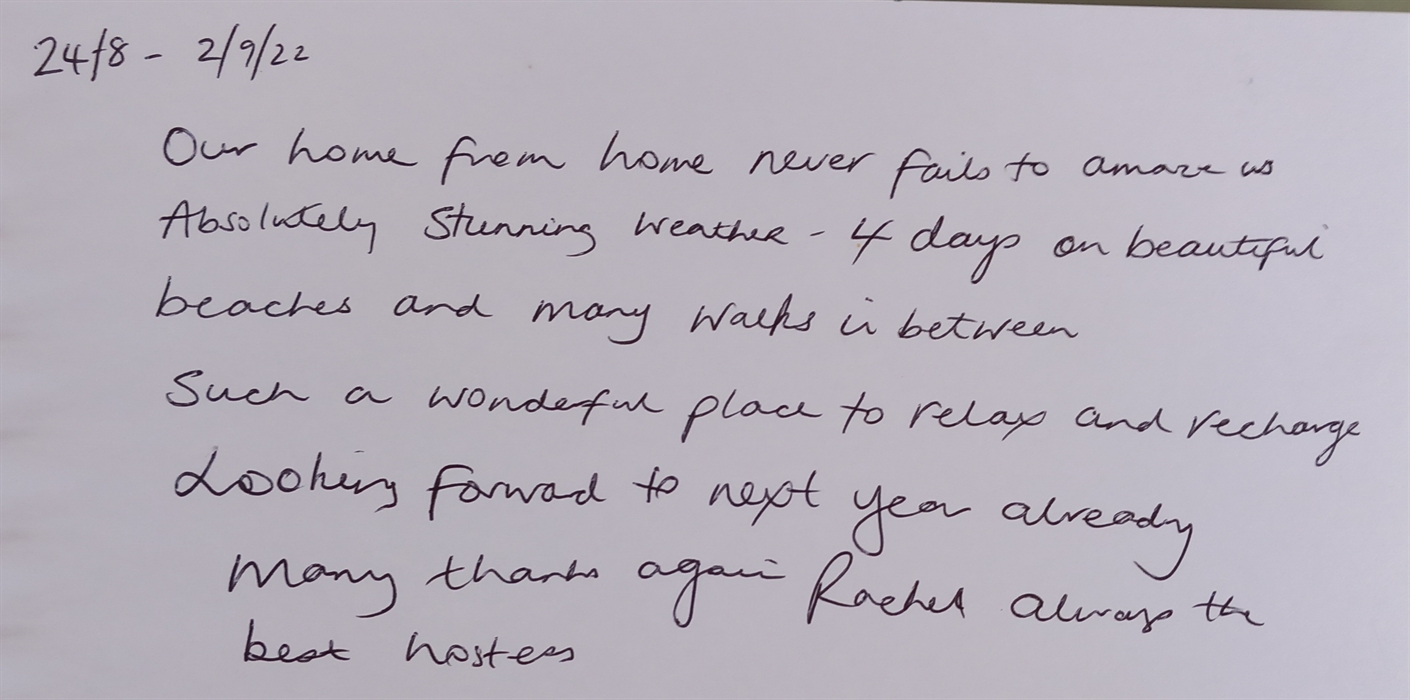 24/8 - 2/9/22
Our home from home never fails to amaze us
Absolutely Stunning Weather - 4 days on beautiful
beaches and many walks in between
Such a wonderful place to relax and recharge
Looking forward to next year already
Many thanks again Rachel always the
best hostess